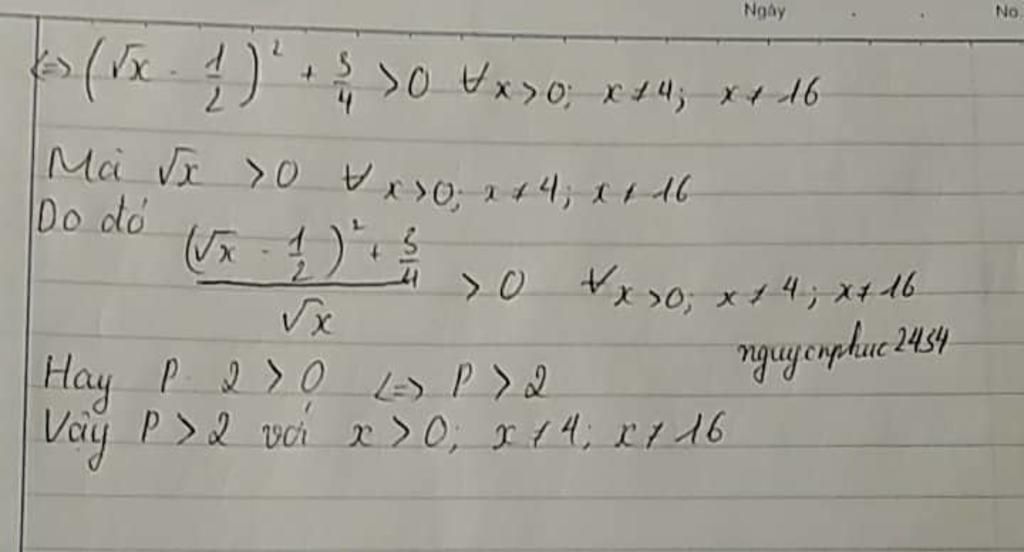 Ngày . . No.
<=> (√x - 1/2)² + 3/4 > 0 ∀x>0; x≠4; x≠16
Mà √x > 0 ∀x>0; x≠4; x≠16
Do đó
((√x - 1/2)² + 3/4)/√x > 0 ∀x>0; x≠4; x≠16
nguyenphuc2454
Hay P - 2 > 0 <=> P > 2
Vậy P > 2 với x > 0; x≠4; x≠16